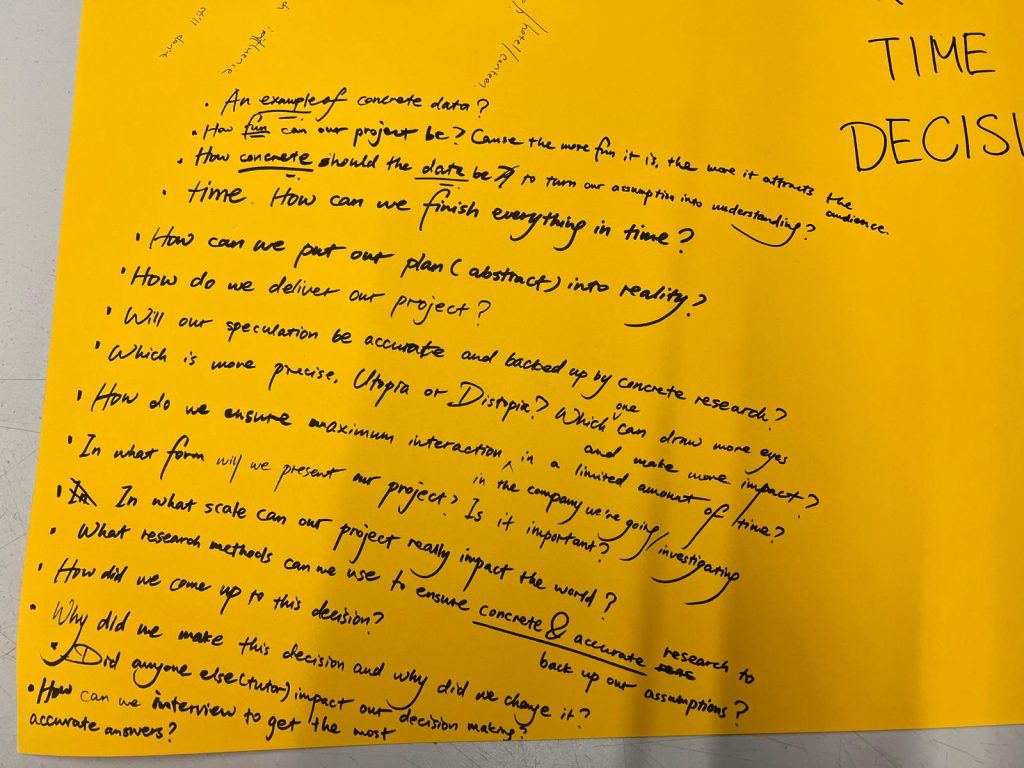 still dance
influence
hotel/canteen
TIME
DECISI
• An example of concrete data?
• How fun can our project be? Cause the more fun it is, the more it attracts the
audience.
• How concrete should the data be to turn our assumption into understanding?
• time. How can we finish everything in time?
• How can we put our plan (abstract) into reality?
• How do we deliver our project?
• Will our speculation be accurate and backed up by concrete research?
• Which is more precise, Utopia or Distopia? Which one can draw more eyes
and make more impact?
• How do we ensure maximum interaction in a limited amount of time?
in the company we're going/investigating
• In what form will we present our project? Is it important?
• In what scale can our project really impact the world?
• What research methods can we use to ensure concrete & accurate research to
back up our assumptions?
• How did we come up to this decision?
• Why did we make this decision and why did we change it?
• Did anyone else (tutor) impact our decision making?
• How can we interview to get the most
accurate answers?